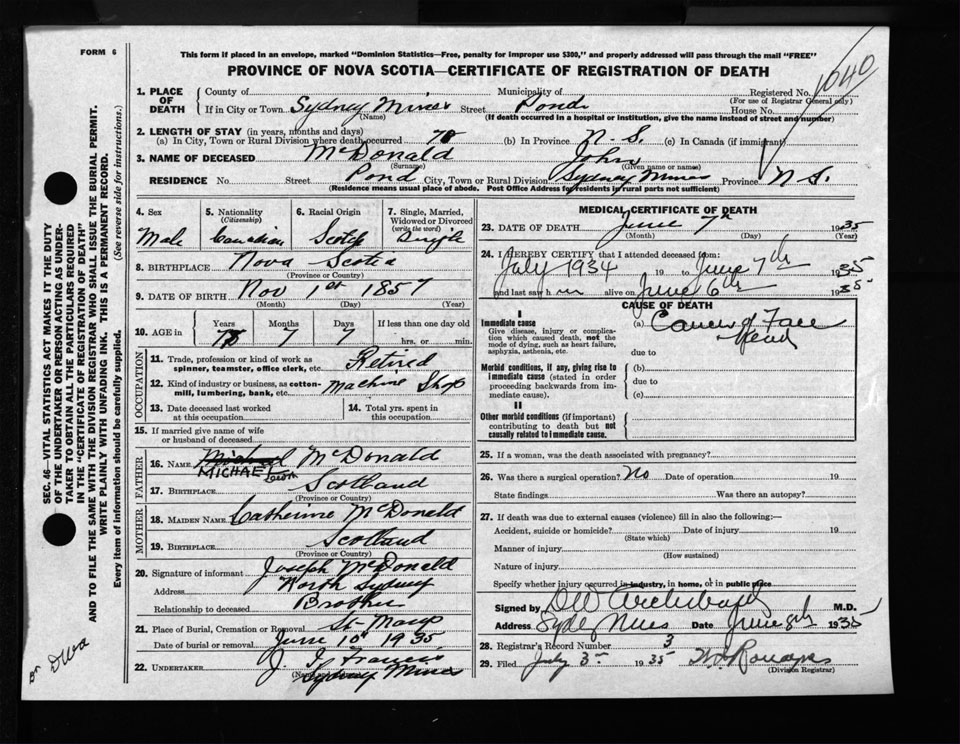 FORM 6
This form if placed in an envelope, marked "Dominion Statistics—Free, penalty for improper use $300," and properly addressed will pass through the mail "FREE"
PROVINCE OF NOVA SCOTIA—CERTIFICATE OF REGISTRATION OF DEATH
1040
1. PLACE OF DEATH County of Municipality of Registered No.
(For use of Registrar General only)
If in City or Town Sydney Mines Street Pond House No.
(Name) (If death occurred in a hospital or institution, give the name instead of street and number)
2. LENGTH OF STAY (in years, months and days)
(a) In City, Town or Rural Division where death occurred 78 (b) In Province N.S. (c) In Canada (if immigrant)
3. NAME OF DECEASED McDonald John
(Surname) (Given name or names)
RESIDENCE No. Street Pond City, Town or Rural Division Sydney Mines Province N.S.
(Residence means usual place of abode. Post Office Address for residents in rural parts not sufficient)
4. Sex Male
5. Nationality (Citizenship) Canadian
6. Racial Origin Scotch
7. Single, Married, Widowed or Divorced (write the word) Single
8. BIRTHPLACE Nova Scotia
(Province or Country)
9. DATE OF BIRTH Nov 1st 1857
(Month) (Day) (Year)
10. AGE in Years Months Days If less than one day old
7 7 hrs. or min.
OCCUPATION
11. Trade, profession or kind of work as spinner, teamster, office clerk, etc. Retired
12. Kind of industry or business, as cotton-mill, lumbering, bank, etc. Machine Shop
13. Date deceased last worked at this occupation
14. Total yrs. spent in this occupation
15. If married give name of wife or husband of deceased
FATHER
16. NAME Michael McDonald
MICHAEL
17. BIRTHPLACE Scotland
(Province or Country)
MOTHER
18. MAIDEN NAME Catherine McDonald
19. BIRTHPLACE Scotland
(Province or Country)
20. Signature of informant Joseph McDonald
Address North Sydney
Relationship to deceased Brother
21. Place of Burial, Cremation or Removal St-Marys
Date of burial or removal June 10 1935
22. UNDERTAKER J. Francis
Sydney Mines
MEDICAL CERTIFICATE OF DEATH
23. DATE OF DEATH June 7th 1935
(Month) (Day) (Year)
24. I HEREBY CERTIFY that I attended deceased from:
July 1934 19 to June 7th 1935
and last saw him alive on June 6th 1935
CAUSE OF DEATH
I
Immediate cause (a) Cancer of Face
Give disease, injury or complication which caused death, not the mode of dying, such as heart failure, asphyxia, asthenia, etc.
Head
due to
Morbid conditions, if any, giving rise to immediate cause (stated in order proceeding backwards from immediate cause).
(b)
due to
(c)
II
Other morbid conditions (if important) contributing to death but not causally related to immediate cause.
25. If a woman, was the death associated with pregnancy?
26. Was there a surgical operation? No Date of operation 19
State findings Was there an autopsy?
27. If death was due to external causes (violence) fill in also the following:—
Accident, suicide or homicide? Date of injury 19
(State which)
Manner of injury
(How sustained)
Nature of injury
Specify whether injury occurred in industry, in home, or in public place
Signed by Archibald M.D.
Address Syd Mines Date June 8th 1935
28. Registrar's Record Number 3
29. Filed July 3rd 1935
(Division Registrar)
SEC. 46—VITAL STATISTICS ACT MAKES IT THE DUTY
OF THE UNDERTAKER OR PERSON ACTING AS UNDER-
TAKER TO OBTAIN ALL THE PARTICULARS REQUIRED
IN THE "CERTIFICATE OF REGISTRATION OF DEATH"
AND TO FILE THE SAME WITH THE DIVISION REGISTRAR WHO SHALL ISSUE THE BURIAL PERMIT.
WRITE PLAINLY WITH UNFADING INK. THIS IS A PERMANENT RECORD.
Every item of information should be carefully supplied. (See reverse side for instructions.)